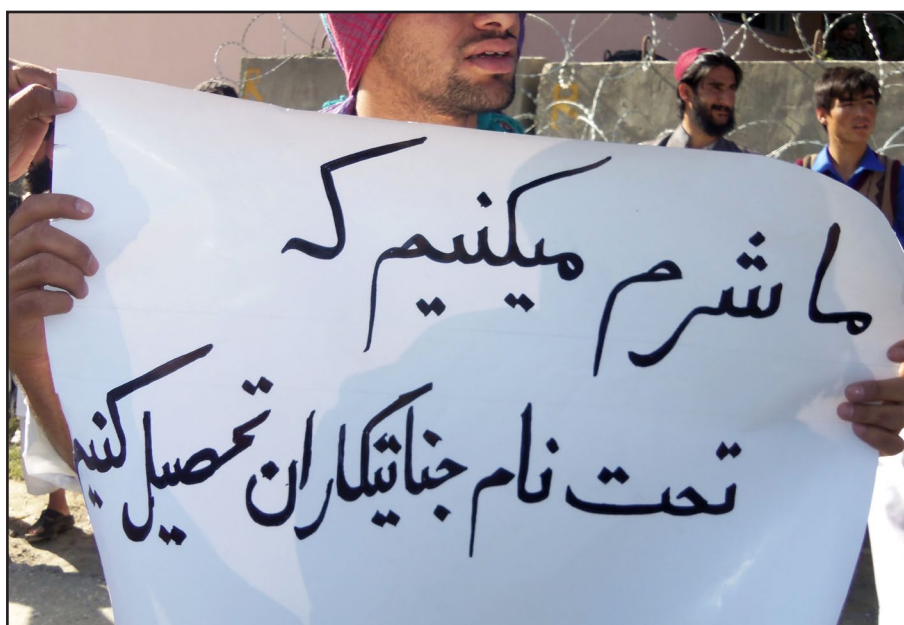 ما شرم میکنیم که
تحت نام جنایتکاران تحصیل کنیم